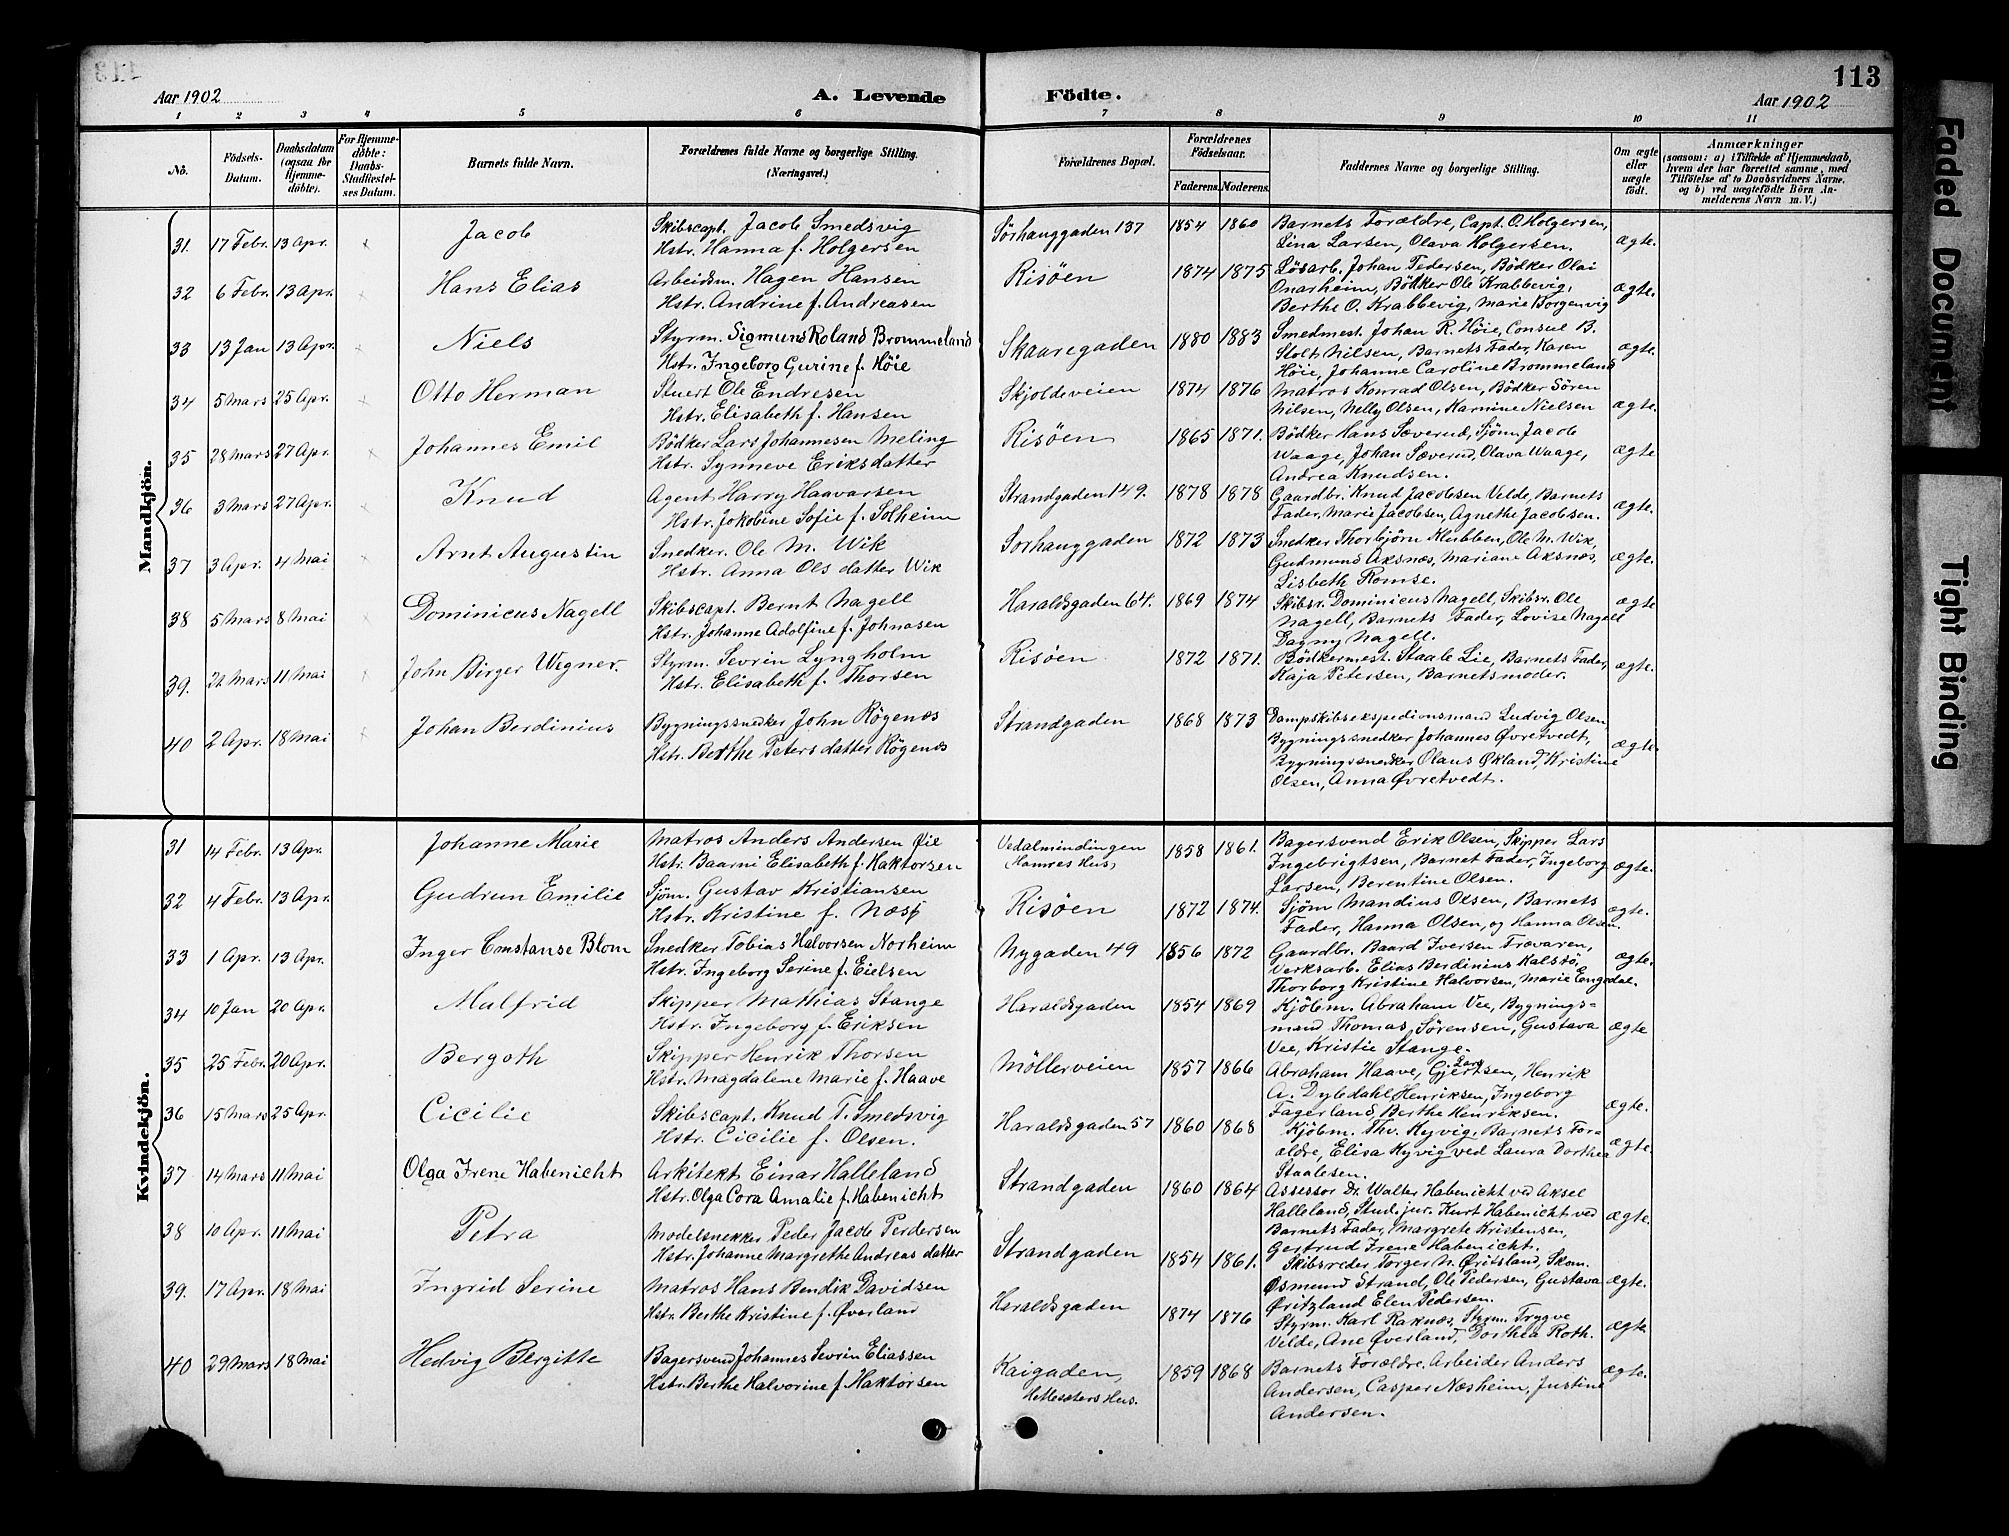 113
Aar 1902
A. Levende Födte.
Aar 1902
1 2 3 4 5 6 7 8 9 10 11
No.
Födsels-Datum.
Daabsdatum (ogsaa for Hjemmedöbte).
For Hjemmedöbte: Daabs-Stadfæstelses Datum.
Barnets fulde Navn.
Forældrenes fulde Navne og borgerlige Stilling. (Næringsvei.)
Forældrenes Bopæl.
Forældrenes Födselsaar.
Faderens. Moderens.
Faddernes Navne og borgerlige Stilling.
Om ægte eller uægte födt.
Anmærkninger
(saasom: a) i Tilfælde af Hjemmedaab, hvem der har forrettet samme, med Tilföielse af to Daabsvidners Navne. og b) ved uægtefödte Börn Anmelderens Navn m. V.)
Mandkjön.
31. 17 Febr. 13 Apr. Jacob Skibscapt. Jacob Smedsvig Sørhauggaden 137 1854 1860 Barnets Forældre, Capt. O. Holgersen,
Hstr. Hanna f. Holgersen Lina Larsen, Olava Holgersen. ægte.
32 6 Febr. 13 Apr. Hans Elias Arbeidsm. Hagen Hansen Risöen 1874 1875 Løsarb. Johan Pedersen, Bödker Olai
Hstr. Andrine f. Andreasen Onarheim, Bödker Ole Krabbevig, ægte.
Berthe O. Krabbevig, Marie Borgenvig
33 13 Jan 13 Apr. Niels Styrm. Sigmund Roland Brommeland Skaaregaden 1880 1883 Smedmest. Johan R. Høie, Consul B.
Hstr. Ingeborg Gurine f. Höie Stolt Nilsen, Barnets Fader, Karen ægte.
Höie, Johanne Caroline Brommeland
34 5 Mars 25 Apr. Otto Herman Stuert Ole Endresen Skjoldeveien 1874 1876 Matros Konrad Olsen, Bödker Sören
Hstr. Elisabeth f. Hansen Nilsen, Nelly Olsen, Karnine Nielsen ægte.
35 28 Mars 27 Apr. Johannes Emil Bödker Lars Johannesen Meling Risöen 1865 1871. Bödker Hans Sæverud, Sjöm. Jacob
Hstr. Synneve Eriksdatter Waage, Johan Sæverud, Olava Waage, ægte
Andrea Knudsen.
36 3 Mars 27 Apr. Knud Agent Harry Haavarsen Strandgaden 149. 1878 1878 Gaardbr. Knud Jacobsen Velde, Barnets
Hstr. Jokobine Sofie f. Solheim Fader, Marie Jacobsen, Agnethe Jacobsen. ægte.
37 3 Apr. 4 Mai Arnt Augustin Snedker. Ole M. Wik Sorhauggaden 1872 1873 Snedker Thorbjörn Klubben, Ole M. Wik,
Hstr. Anna Ols datter Wik Gudmund Aksnæs, Mariane Aksnæs, ægte.
Lisbeth Romse.
38 5 Mars 8 Mai Dominicus Nagell Skibscapt. Bernt Nagell Haraldsgaden 64. 1869 1874 Skibsr. Dominicus Nagell, Skibsr. Ole
Hstr. Johanne Adolfine f. Johnasen Nagell, Barnets Fader, Lovise Nagell ægte
Dagny Nagell.
39. 21 Mars 11 Mai John Birger Wegner. Styrm. Sevrin Lyngholm Risöen 1872 1871. Bödkermest. Staale Lie, Barnets Fader,
Hstr. Elisabeth f. Thorsen Kaja Petersen, Barnets moder. ægte.
40 2 Apr. 18 Mai Johan Berdinius Bygningssnedker John Røgenæs Strandgaden 1868 1873 Dampskibsekspedionsmand Ludvig Olsen,
Hstr. Berthe Peters datter Røgenæs Bygningssnedker Johannes Øvretvedt, ægte.
Bygningssnedker Olaus Økland, Kristine
Olsen, Anna Øvretvedt.
Kvindekjön.
31 14 Febr. 13 Apr. Johanne Marie Matros Anders Andersen Vedalmindingen 1858 1861. Bagersvend Erik Olsen, Skipper Lars
Hstr. Baarni Elisabeth f. Haktorsen (Hamres Hus) Ingebrigtsen, Barnet Fader, Ingeborg ægte.
Larsen, Berentine Olsen.
32 4 Febr. 13 Apr. Gudrun Emilie Sjöm. Gustav Kristiansen Risöen 1872 1874. Sjöm Mandius Olsen, Barnets
Hstr. Kristine f. Næss Fader, Hanna Olsen, og Hanna Olsen. ægte.
33 1 Apr. 13 Apr. Inger Constanse Blom Snedker Tobias Halvorsen Norheim Nygaden 49 1856 1872 Gaardbr. Baard Iversen Frøvaren,
Hstr. Ingeborg Serine f. Eielsen Verksarb. Elias Berdinius Kalstö, ægte.
Thorborg Kristine Halvorsen, Marie Engedal.
34 10 Jan 20 Apr. Malfrid Skipper Mathias Stange Haraldsgaden 1854 1869 Kjöbm. Abraham Vee, Bygnings-
Hstr. Ingeborg f. Eriksen mand Thomas, Sørensen, Gustava ægte
Vee, Kristie Stange.
35 25 Febr. 20 Apr. Bergoth Skipper Henrik Thorsen Möllerveien 1857 1866 Abraham Haave, Lars Gjertsen, Henrik
Hstr. Magdalene Marie f. Haave A. Dybdahl Henriksen, Ingeborg
Fagerland, Berthe Henriksen. ægte.
36 15 Mars 25 Apr. Cicilie Skibscapt. Knud T. Smedsvig Haraldsgaden 57 1860 1868 Kjöbm. Thv. Kyvig, Barnets For-
Hstr. Cicilie f. Olsen. ældre, Elisa Kyvig ved Laura Dorthea ægte.
Staalesen.
37 14 Mars 11 Mai Olga Irene Habenicht Arkitekt Einar Halleland Strandgaden 1860 1864 Assessor Dr. Walter Habenicht ved Aksel
Hstr. Olga Cora Amalie f. Habenicht Halleland, Stud. jur. Kurt Habenicht ved ægte.
Barnets Fader, Margrete Kristensen,
Gertrud Irene Habenicht.
38 10 Apr. 11 Mai Petra Modelsnekker Peder Jacob Perdersen Strandgaden 1854 1861. Skibsreder Torger N. Øritsland, Skom.
Hstr. Johanne Margrethe Andreas datter Øsmund Strand, Ole Pedersen, Gustava ægte.
Øritzland Elen Pedersen.
39. 17 Apr. 18 Mai Ingrid Serine Matros Hans Bendik Davidsen Haraldsgaden 1874 1876 Styrm. Karl Raknæs, Styrm. Trygve
Hstr. Berthe Kristine f. Øverland Velde, Ane Øverland, Dorthea Roth. ægte
40 29 Mars 18 Mai Hedvig Bergitte Bagersvend Johannes Sevrin Eliassen Kaigaden, 1859 1868 Barnets Forældre. Arbeider Anders
Hstr. Berthe Halvorine f. Haktorsen Hettesæters Hus. Andersen, Casper Næsheim, Justine ægte.
Andersen.
Faded Document
Tight Binding